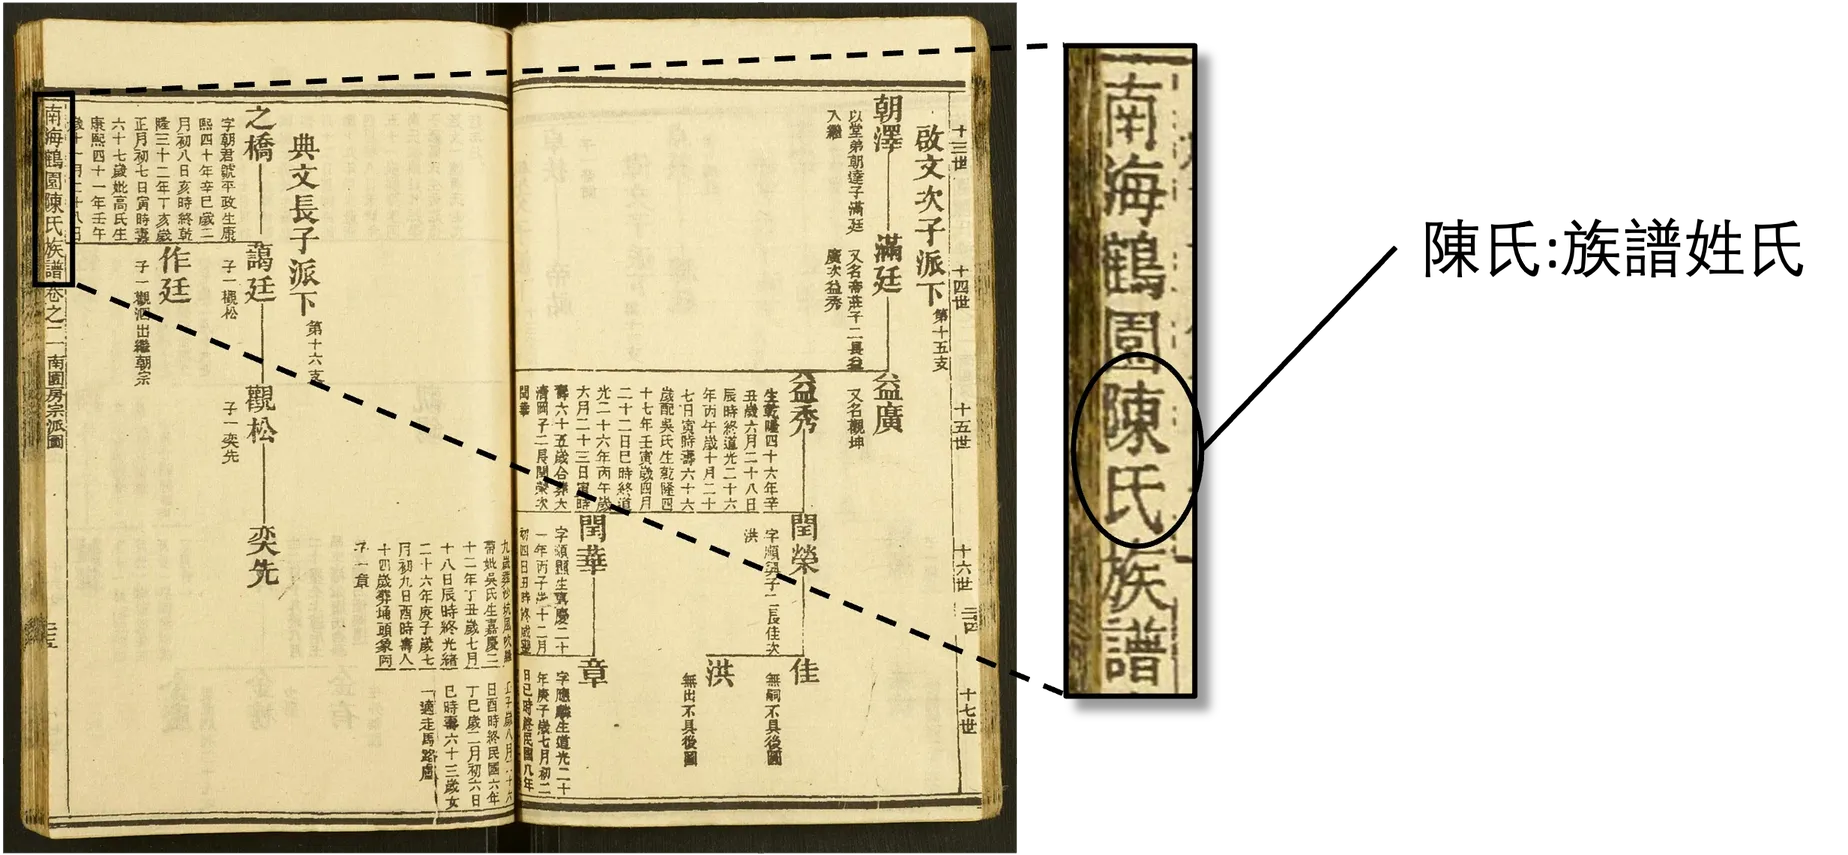 十三世
十四世
十五世
十六世
十七世
啟文次子派下
第十五支
朝澤
以堂弟朝達子滿廷
入繼
滿廷
又名帝莊子二長益
廣次益秀
益廣
又名觀坤
益秀
生乾隆四十六年辛
丑歲六月二十八日
辰時終道光二十六
年丙午歲十月二十
七日寅時壽六十六
歲配吳氏生乾隆四
十七年壬寅歲四月
二十二日巳時終道
光二十六年丙午歲
六月二十三日寅時
壽六十五歲合葬大
濟岡子二長閏榮次
閏華
閏榮
洪
閏華
佳
無嗣不具後圖
洪
無出不具後圖
章
典文長子派下
第十六支
之橋
字朝君號平政生康
熙四十年辛巳歲二
月初八日亥時終乾
隆三十二年丁亥歲
正月初七日寅時壽
六十七歲妣高氏生
康熙四十一年壬午
歲十一月二十八日
藹廷
子一觀松
作廷
子一觀泗出繼朝宗
觀松
子一奕先
奕先
十二年丁丑歲七月
十八日辰時終光緒
二十六年庚子歲七
月初九日酉時壽八
十四歲葬埇頭象岡
子一章
日酉時終民國六年
丁巳歲二月初六日
巳時壽六十三歲女
一適走馬路盧
南海鶴園陳氏族譜卷之二
南園房宗派圖
南海鶴園陳氏族譜
陳氏:族譜姓氏